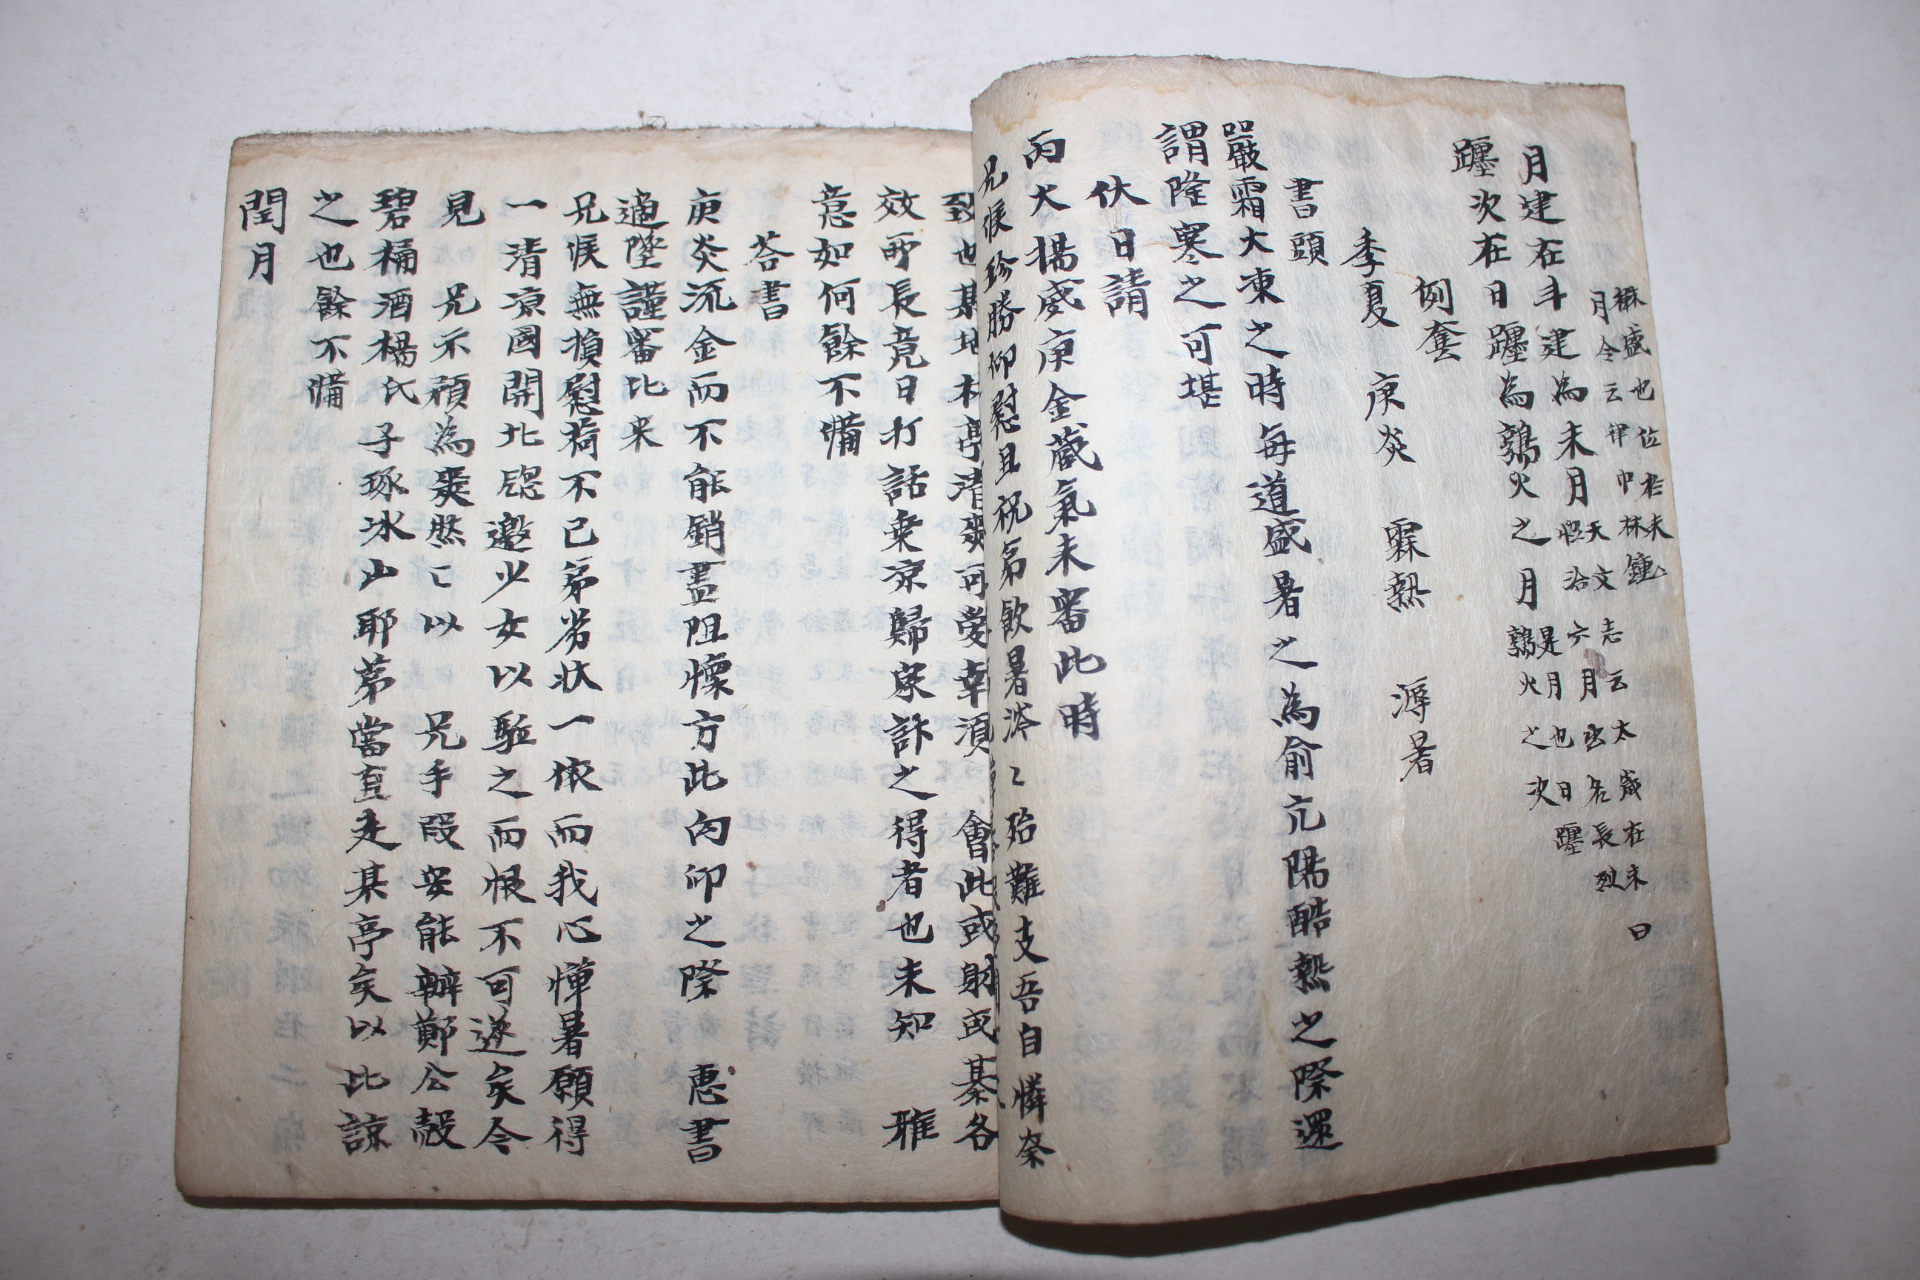 楙盛也位於未
月令云律中林鍾
月建在斗建為未月天文志云太歲在未曰
恊洽六月出名長烈
躔次在日躔為鶉火之月是月也日躔
鶉火之次
例套
季夏 庚炎 霖熱 溽暑
書頭
嚴霜大凍之時每道盛暑之為俞亢陽酷熱之際還
謂隆寒之可堪
伏日請
丙大揚威庚金藏氣未審此時
兄候珍勝仰慰且祝弟飮暑涔〻殆難支吾自憐奈
致也某地林亭清爽可愛幸須 會此或射或棊各
效所長竟日打話乘凉歸家計之得者也未知 雅
意如何餘不備
答書
庚炎流金而不能銷盡阻懷方此向仰之際 惠書
適墜謹審比来
兄候無損慰荷不已弟劣狀一依而我心憚暑願得
一清凉國開北牕邀少女以駈之而恨不可遂矣今
見 兄示頓為爽然〻以 兄手段安能辦鄭公殼
碧桶酒楊氏子琢冰山耶第當直走某亭矣以此諒
之也餘不備
閏月